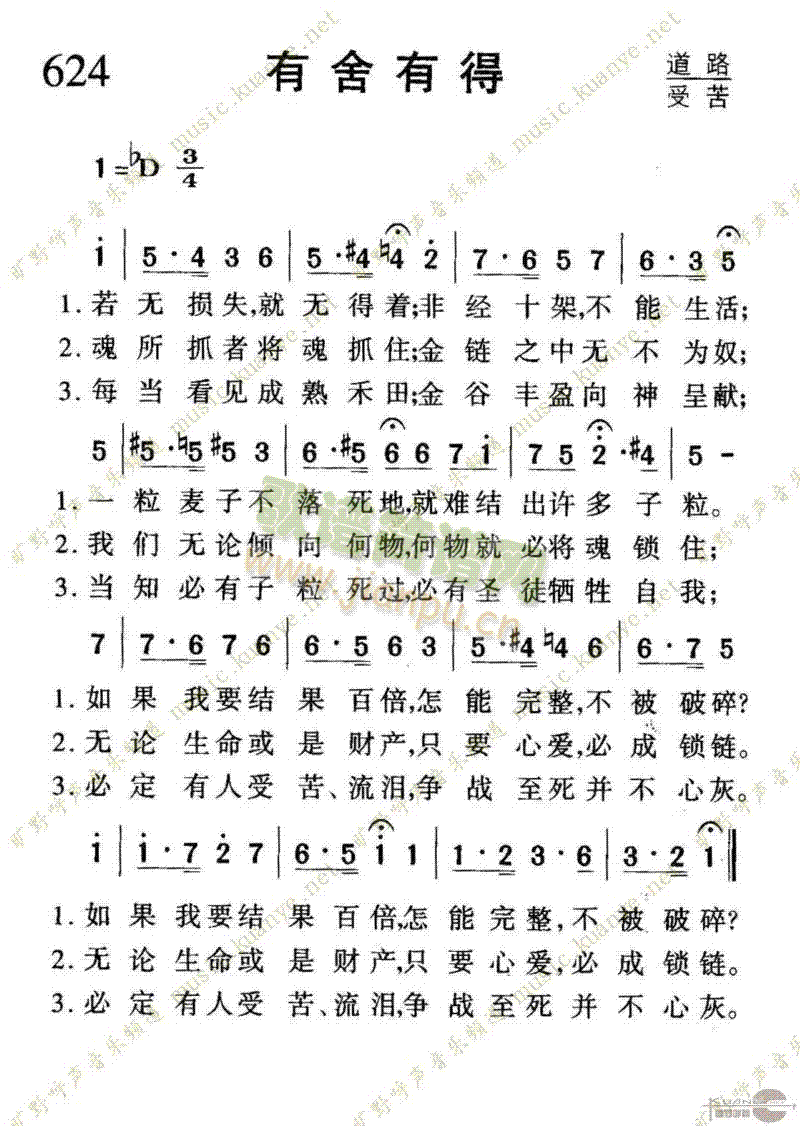 624 有舍有得 道路
受苦
1=♭D 3/4
i | 5·4 3 6 | 5·#4 ♮4 2 | 7·6 5 7 | 6·3 5
1.若无损失,就无得着;非经十架,不能生活;
2.魂所抓者将魂抓住;金链之中无不为奴;
3.每当看见成熟禾田;金谷丰盈向神呈献;
5 | #5·♮5 #5 3 | 6·#5 6 6 7 i | 7 5 2·#4 | 5 -
1.一粒麦子不落死地,就难结出许多子粒。
2.我们无论倾向何物,何物就必将魂锁住;
3.当知必有子粒死过,必有圣徒牺牲自我;
7 | 7·6 7 6 | 6·5 6 3 | 5·#4 ♮4 6 | 6·7 5
1.如果我要结果百倍,怎能完整,不被破碎?
2.无论生命或是财产,只要心爱,必成锁链。
3.必定有人受苦、流泪,争战至死并不心灰。
i | i·7 2 7 | 6·5 i 1 | 1·2 3·6 | 3·2 1 ‖
1.如果我要结果百倍,怎能完整,不被破碎?
2.无论生命或是财产,只要心爱,必成锁链。
3.必定有人受苦、流泪,争战至死并不心灰。
歌谱简谱网
www.jianpu.cn
旷野呼声音乐频道 music.kuanye.net